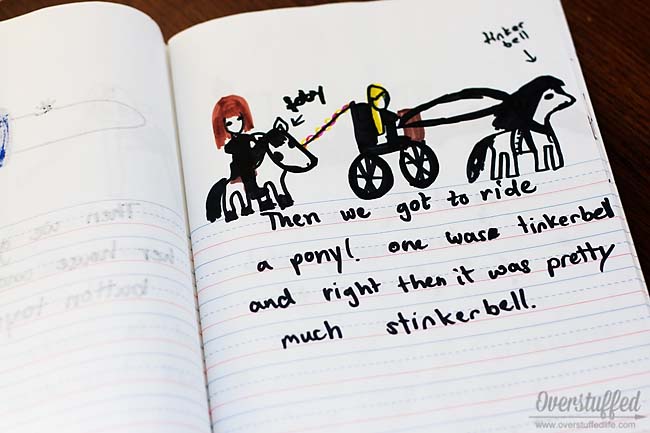 tinker
bell
foby
Then we got to ride
a pony! one wase tinkerbell
and right then it was pretty
much stinkerbell.
Then we g
her house and
button toys
Overstuffed
www.overstuffedlife.com